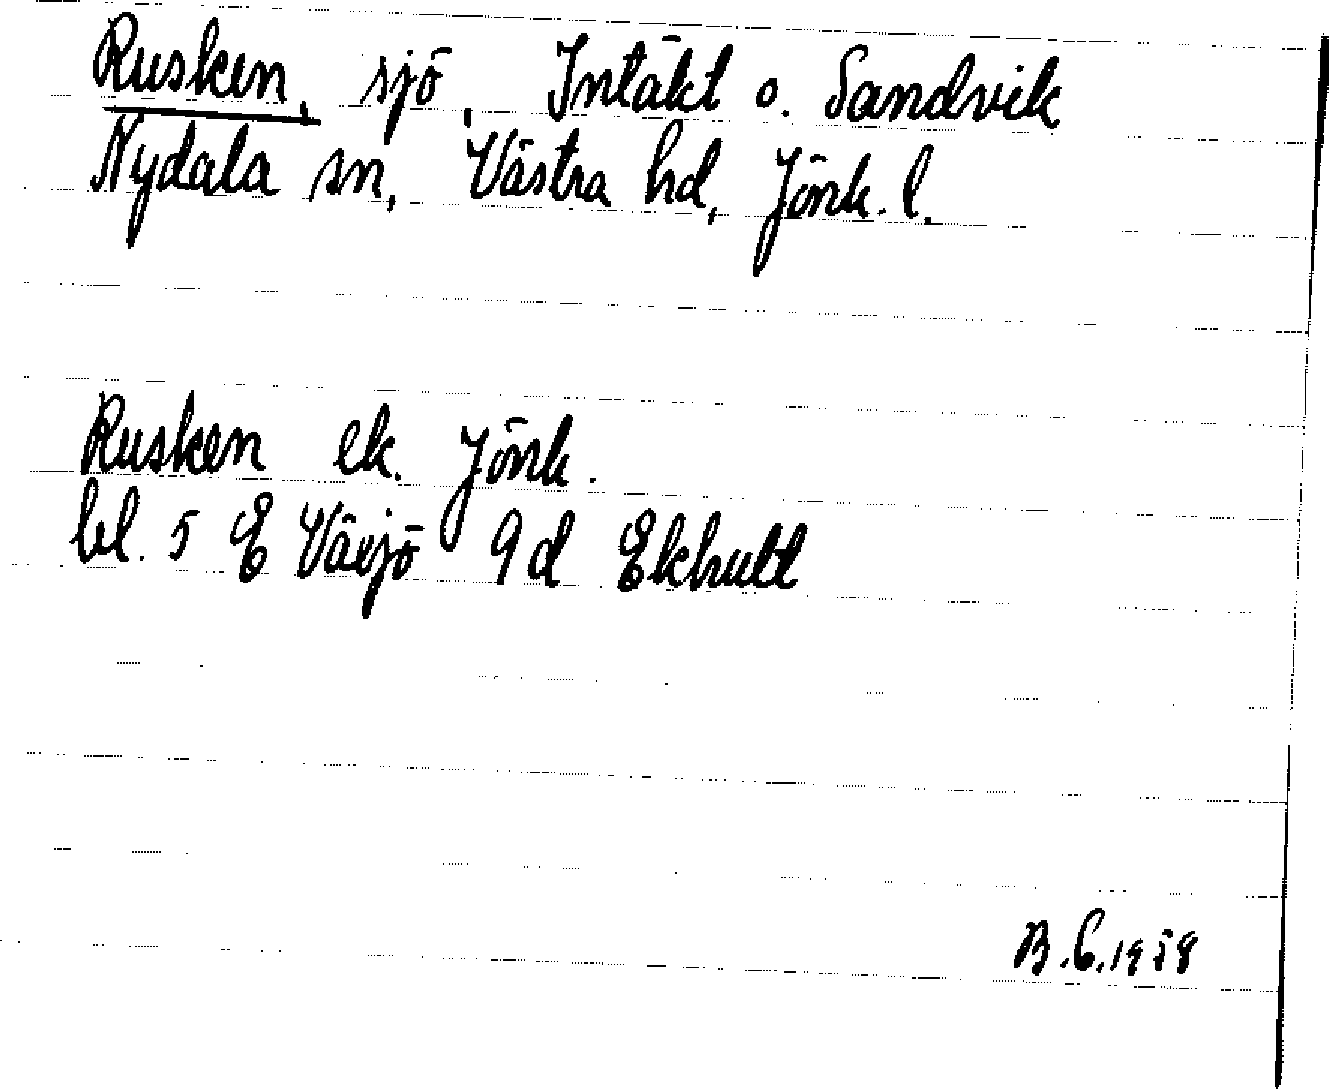 Rusken, sjö, Intäkt o. Sandvik
Nydala sn, Västra hd, Jönk. l.
Rusken ek. Jönk.
bl. 5 E Växjö 9d Ekhult
B.C. 1958